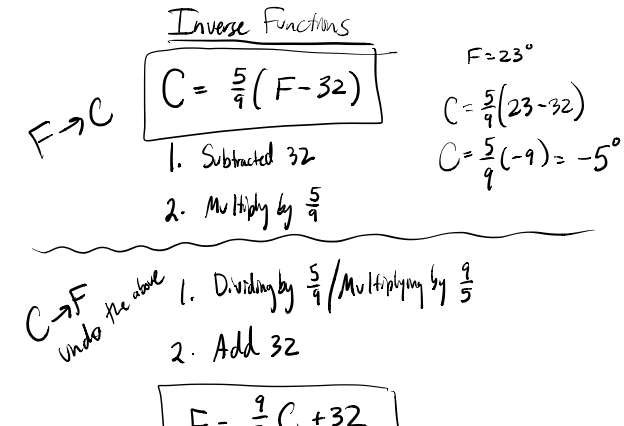 Inverse Functions
F→C
C = 5/9 (F - 32)
1. Subtracted 32
2. Multiply by 5/9
F = 23°
C = 5/9 (23 - 32)
C = 5/9 (-9) = -5°
C→F
undo the above
1. Dividing by 5/9 / Multiplying by 9/5
2. Add 32
F = 9/ C + 32